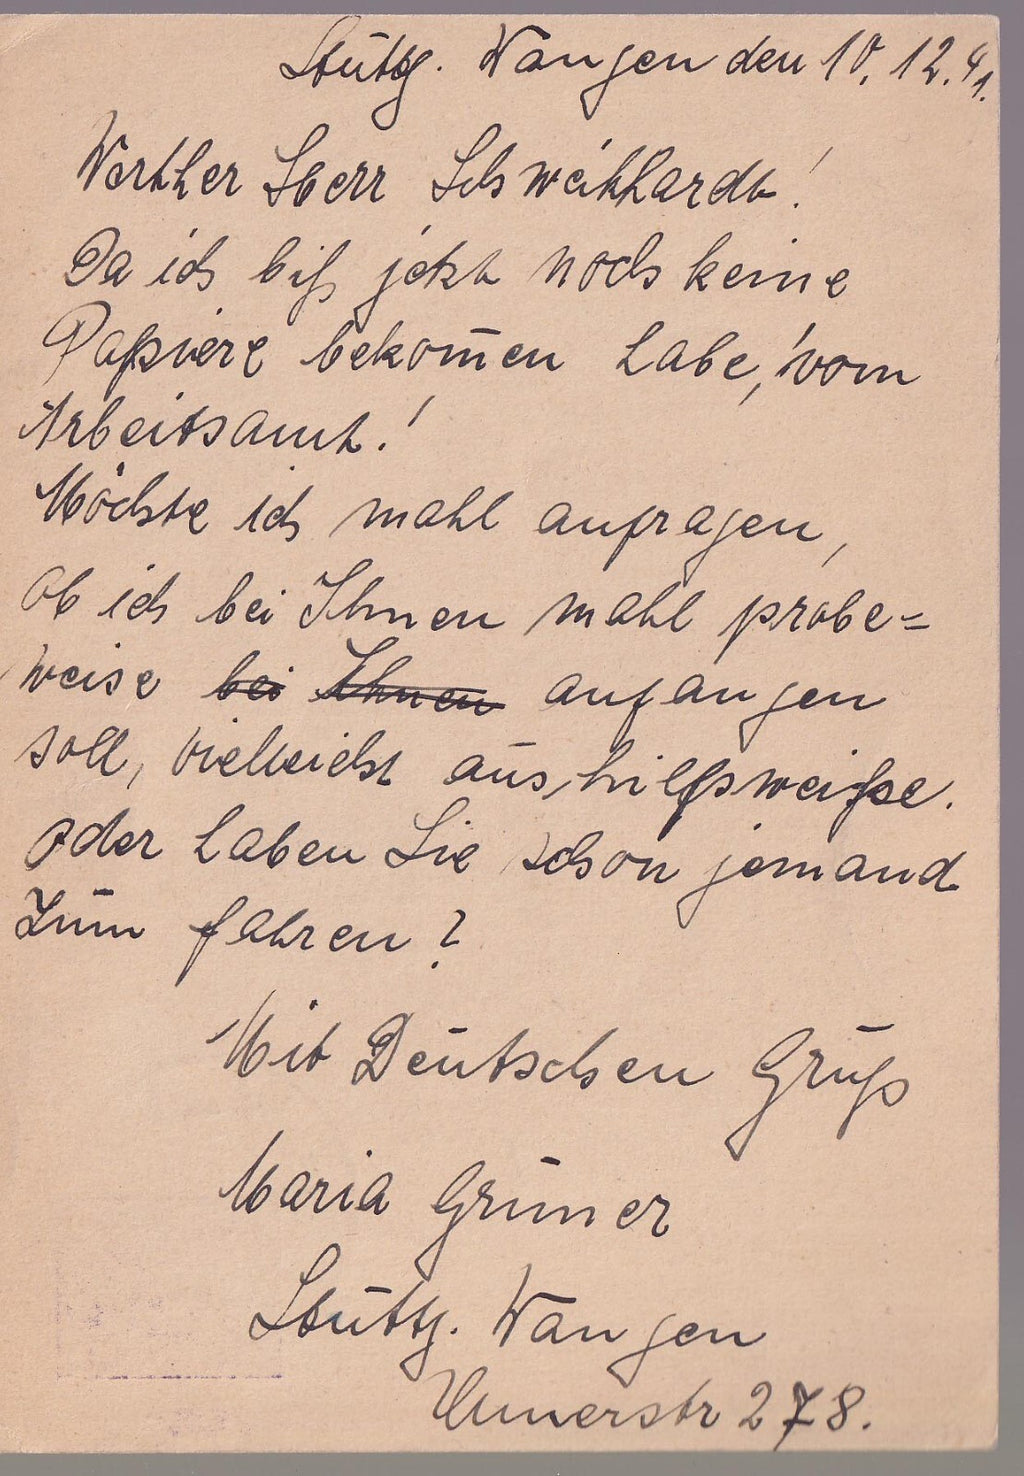 Stuttg. Wangen den 10. 12. 41.
Werther Herr Schweikhardt!
Da ich biß jetzt noch keine
Papiere bekom̄en habe, vom
Arbeitsamt.!
Möchte ich mahl anfragen,
ob ich bei Ihnen mahl probe=
weise bei Ihnen anfangen
soll, vielleicht aushilfsweiße.
oder haben Sie schon jemand
zum fahren?
Mit Deutschen Gruß
Maria Gruner
Stuttg. Wangen
278.